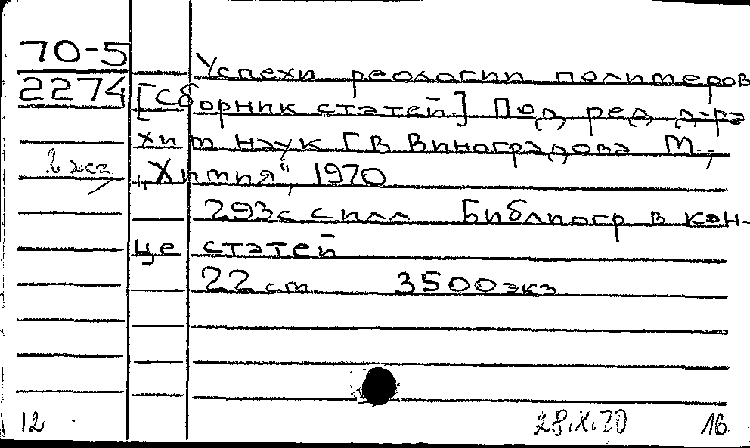 70-5
2274
2 экз
Успехи реологии полимеров
[Сборник статей] Под ред д-ра
хим наук Г В Виноградова М.,
„Химия", 1970
293 с с илл Библиогр в кон-
це статей
22 см 3500 экз
12 28.X.70 16